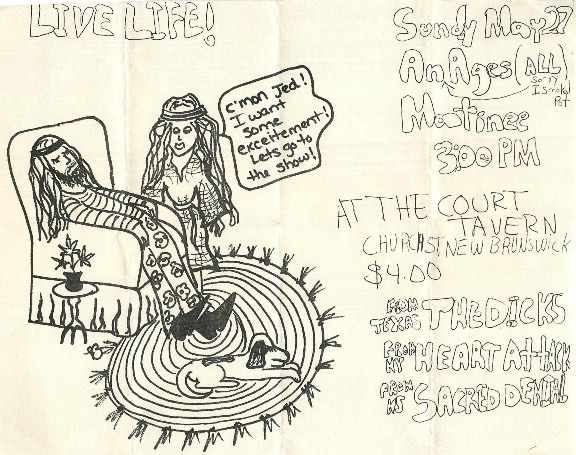 LIVE LIFE!
c'mon Jed!
I want
some
exceitement!
Lets go to
the show!
Sundy May 27
An Ages (ALL)
Sorry
I smoked
Pot
Mastinee
3:00 PM
AT THE COURT
TAVERN
CHURCH ST NEW BRUNSWICK
$4.00
FROM
TEXAS THE DICKS
FROM
NY HEART ATTACK
FROM
NJ SACRED DENIAL